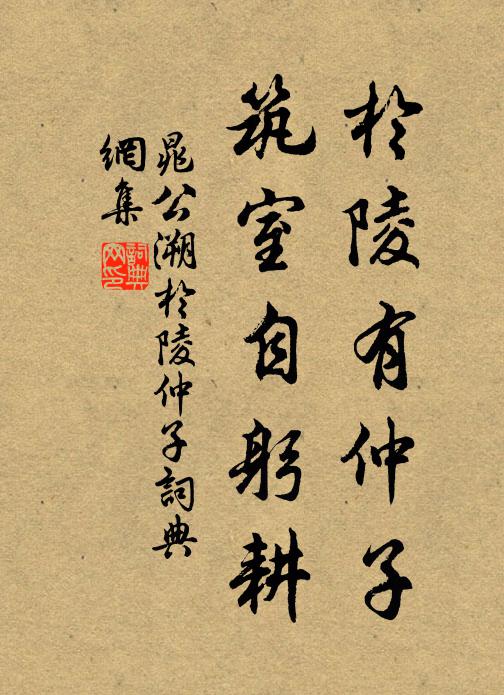 於陵有仲子
筑室自躬耕
晁公溯於陵仲子詞典
網集
詞典
网印